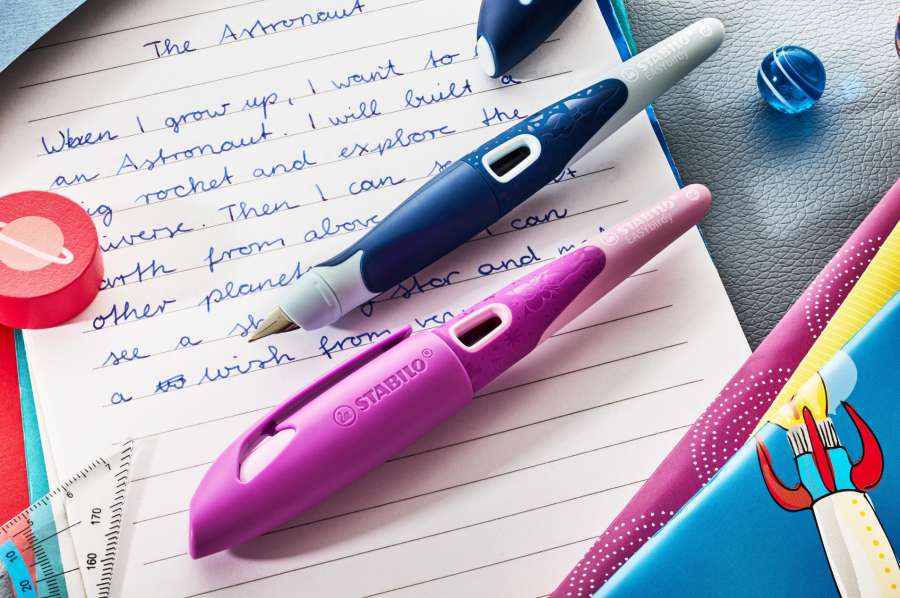 The Astronaut
When I grow up, I want to
an Astronaut. I will built a
big rocket and explore the
universe. Then I can
earth from above. I can
other planet
see a star and
a wish from
STABILO
EASYbirdy
STABILO
EASYbirdy
STABILO
7
6
170
160
10
20